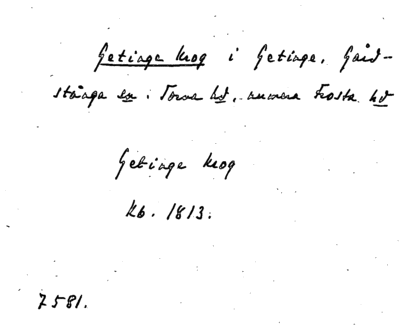 Getinge krog i Getinge, Gård-
stånga sn. Torna hd, numera Frosta hd
Getinge krog
kb. 1813.
7581.